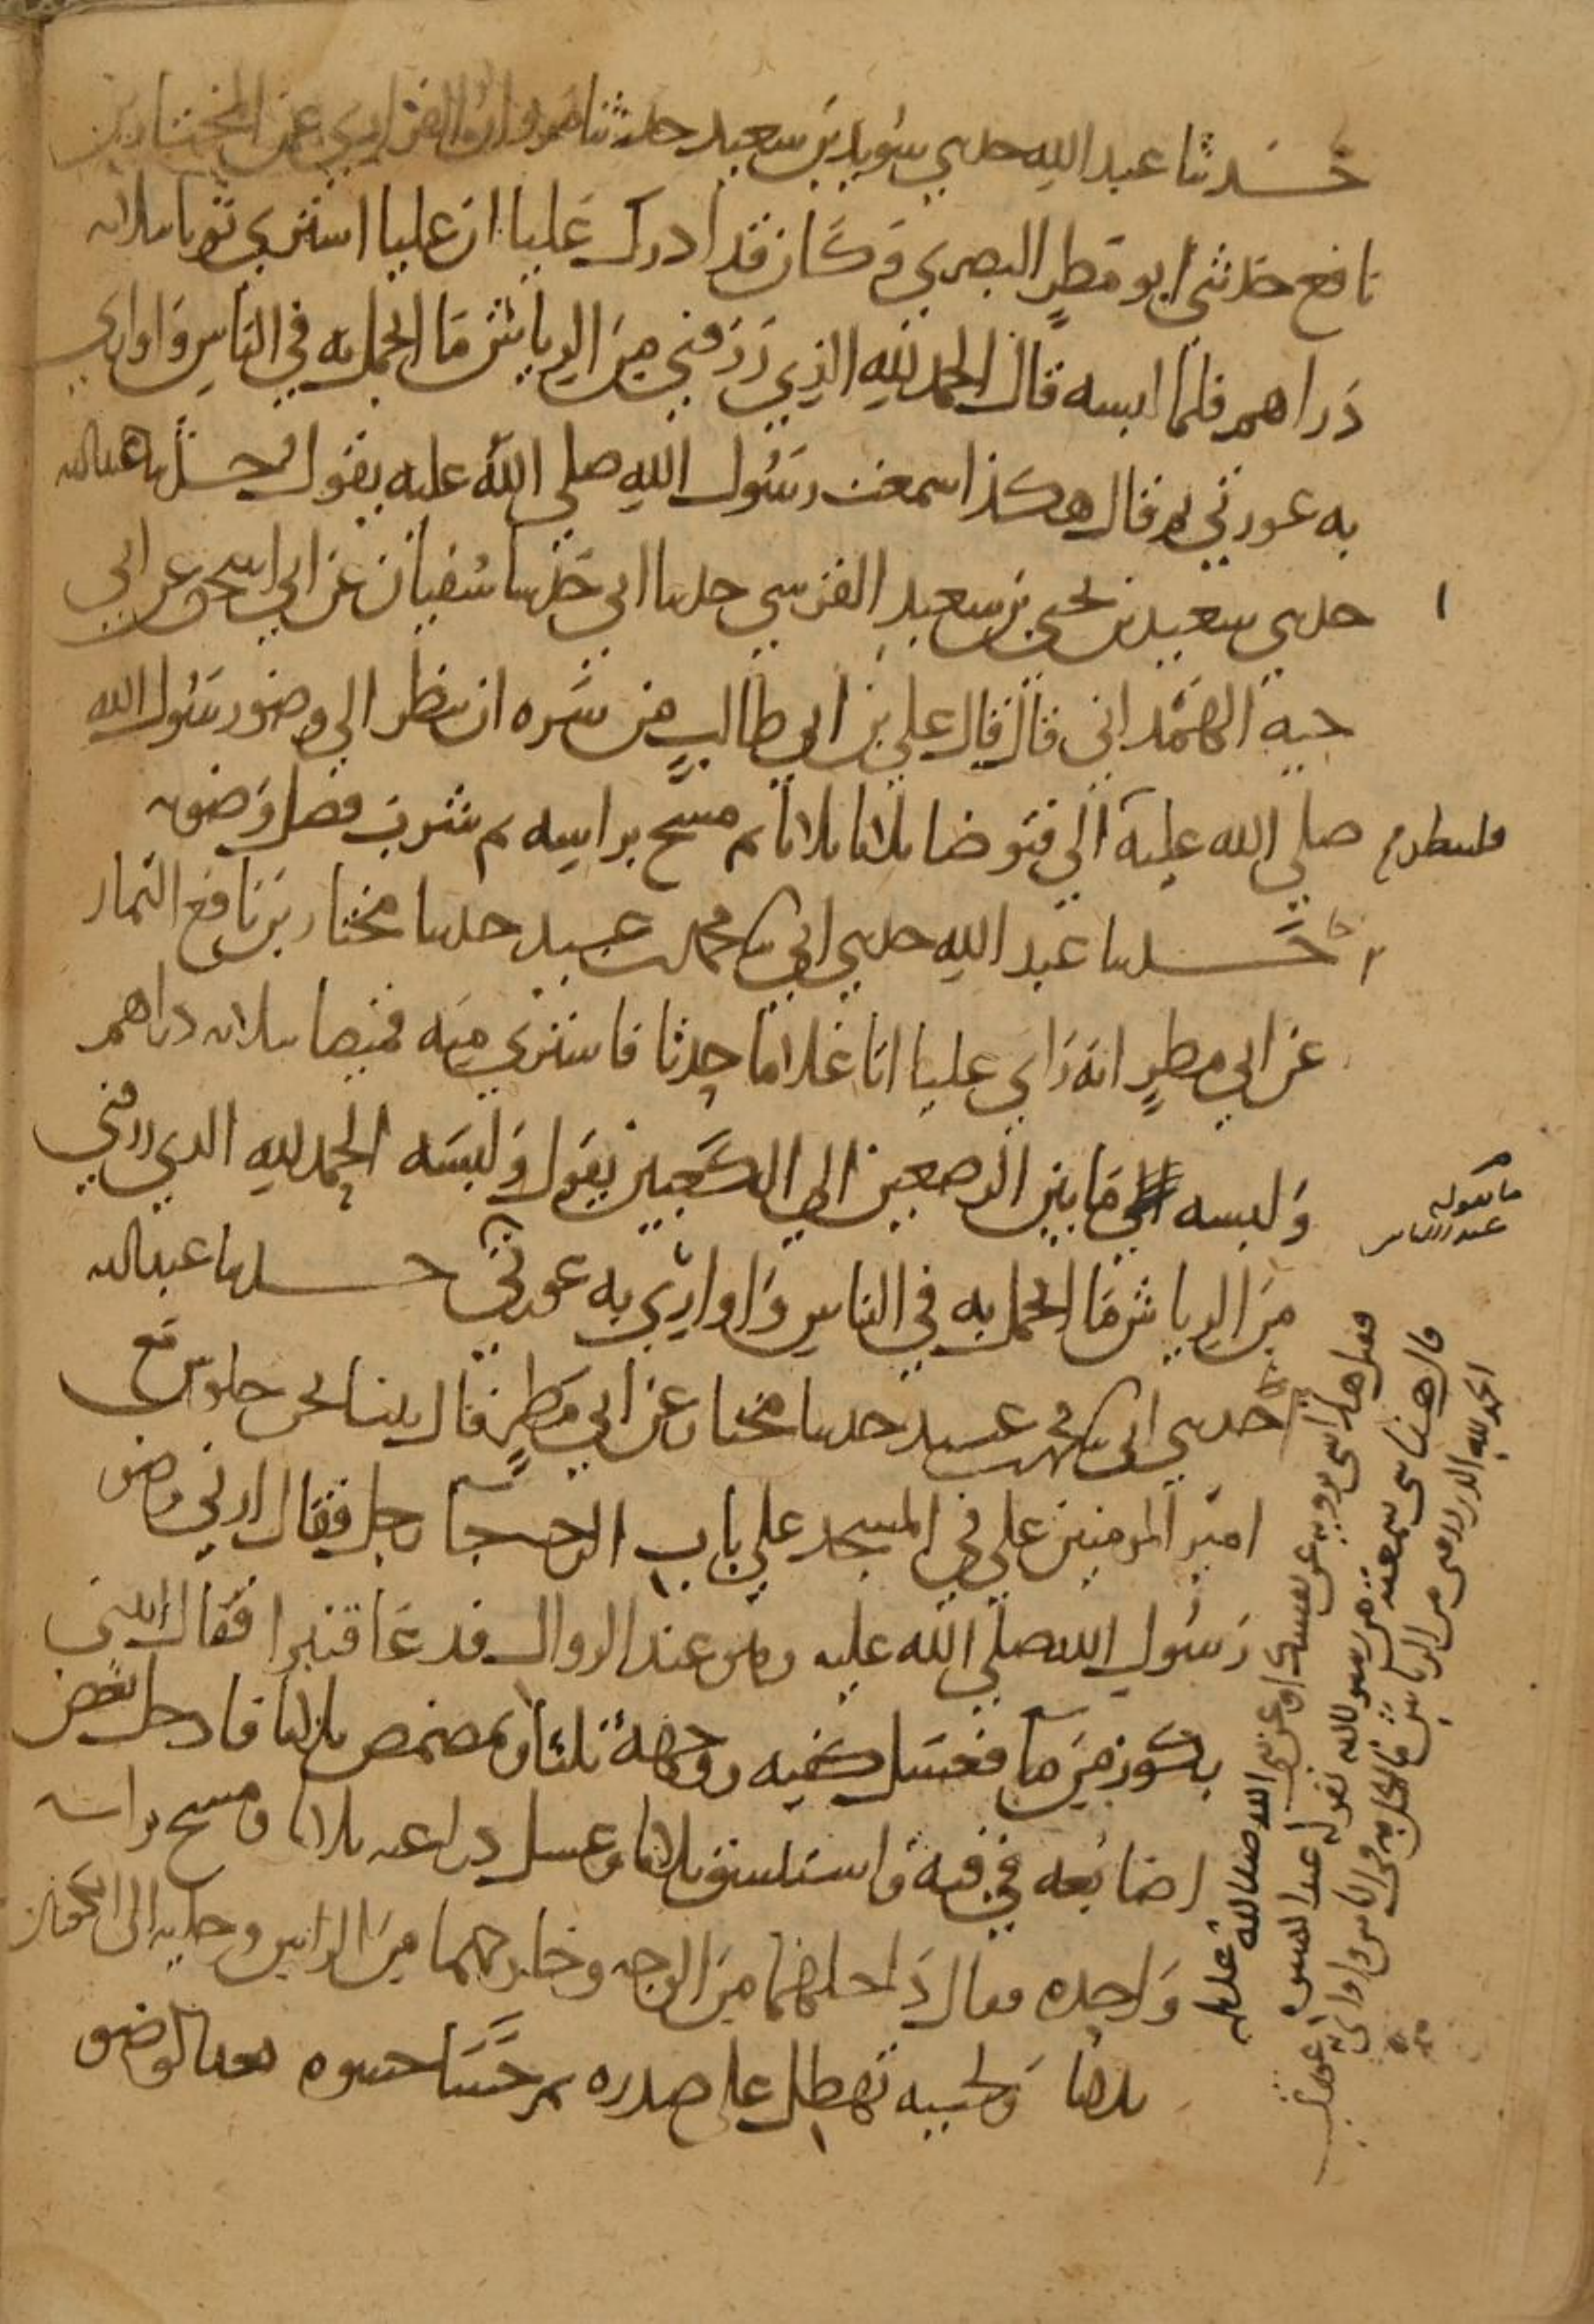 حدثنا عبد الله حدثني سويد بن سعيد حدثنا مروان الفزاري عن المختار بن
نافع حدثني ابو مطر البصري وكان قد ادرك عليا ان عليا اشترى ثوبا بثلاثه
دراهم فلما لبسه قال الحمد لله الذي رزقني من الرياش ما اتجمل به في الناس واواري
به عورتي ثم قال هكذا سمعت رسول الله صلى الله عليه يقول حدثنا عبد الله
حدثني سعيد بن يحيى بن سعيد القرشي حدثنا ابي حدثنا سفيان عن ابي اسحق عن ابي
حية الهمداني قال قال علي بن ابي طالب من سره ان ينظر الي وضو رسول الله
صلي الله عليه الي فتوضا ثلاثا ثلاثا ثم مسح براسه ثم شرب فضل وضوه
فلينظر
حدثنا عبد الله حدثني ابي محمد بن عبيد حدثنا مختار بن نافع التمار
عن ابي مطر انه راي عليا اتا غلاما حدثا فاشتري منه قميصا بثلاثه دراهم
ولبسه ما بين الرصعين الي الكعبين يقول ولبسه الحمد لله الذي رزقني
ما يقوله
عند اللباس
من الرياش ما اتجمل به في الناس واواري به عورتي حدثنا عبد الله
حدثني ابي محمد بن عبيد حدثنا مختار عن ابي مطر قال بينا نحن جلوس مع
امير المومنين علي في المسجد علي باب الرحبه جا رجل فقال ارني وضو
رسول الله صلي الله عليه وهو عند الزوال فدعا قنبرا فقال ايتني
بكوز من ما فغسل كفيه ووجهه ثلثا وتمضمض ثلاثا فادخل بعض
اصابعه في فيه واستنشق ثلاثا وغسل ذراعيه ثلاثا ومسح براسه
واحده فقال داخلهما من الوجه وخارجهما من الراس ورجليه الى الكعبين
ثلاثا ولحيته تهطل على صدره ثم حسا حسوه بعد الوضو
فقيل هذا شي ترويه عن نفسك او عن نبي الله صلى الله عليه
قال هذا شي سمعته من رسول الله يقوله عند اللبس
الحمد لله الذي رزقني من الرياش ما اتجمل به في الناس واواري به عورتي